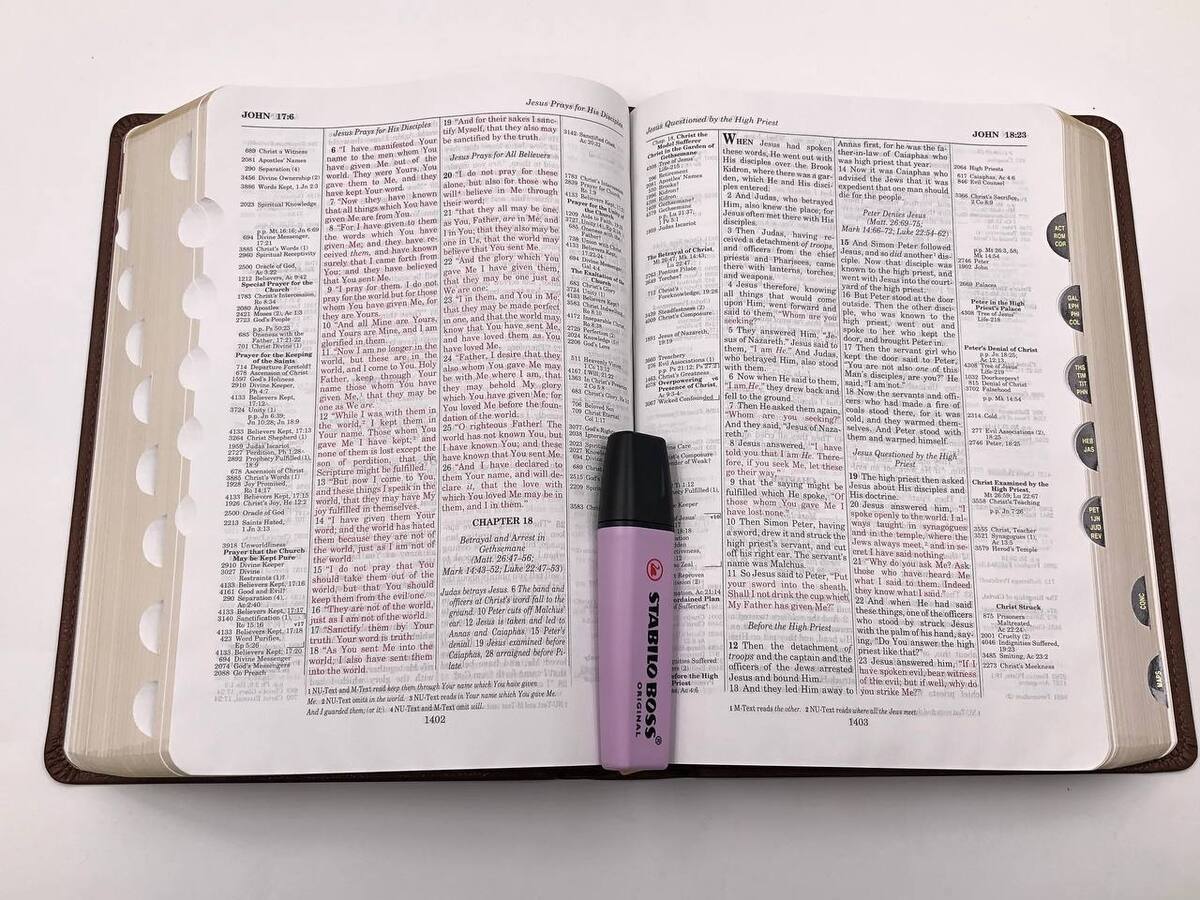 JOHN 17:6
Jesus Prays for His Disciples
689 Christ a Witness
2081 Apostles' Names
290 Separation (4)
3456 Divine Ownership (2)
3886 Words Kept, 1 Jn 2:3
2023 Spiritual Knowledge
p.p. Mt 16:16; Jn 6:69
694 Divine Messenger,
17:21
3885 Christ's Words (1)
2960 Spiritual Receptivity
2500 Oracle of God,
Ac 3:22
1212 Believers, Ac 9:42
Special Prayer for the
Church
1783 Christ's Intercession,
Ro 8:34
2080 Apostles
2421 Moses (2), Ac 1:3
2723 God's People
p.p. Ps 50:23
685 Oneness with the
Father, 17:21-22
701 Christ Divine (1)
Prayer for the Keeping
of the Saints
714 Departure Foretold
678 Ascension of Christ
1597 God's Holiness
2910 Divine Keeper,
Ph 4:7
4133 Believers Kept,
17:12
3724 Unity (1)
p.p. Jn 6:39;
Jn 10:28; Jn 18:9
4133 Believers Kept, 17:13
3264 Christ Shepherd (1)
1959 Judas Iscariot
2727 Perdition, Ph 1:28
2892 Prophecy Fulfilled (1),
18:9
678 Ascension of Christ
3885 Christ's Words (1)
1928 Joy Promised,
Ro 14:17
4133 Believers Kept, 17:15
1926 Christ's Joy, He 12:2
2500 Oracle of God
2213 Saints Hated,
1 Jn 3:13
3918 Unworldliness
Prayer that the Church
May be Kept Pure
2910 Divine Keeper
3027 Divine
Restraints (1)
4133 Believers Kept, 17:16
4161 Good and Evil
290 Separation (4),
Ac 2:40
4133 Believers Kept, 17:17
3140 Sanctification (1),
Ro 15:16
4133 Believers Kept, 17:18
423 Word Purifies,
Ep 5:26
4133 Believers Kept, 17:20
694 Divine Messenger
2074 God's Messengers
2088 Go Preach
Jesus Prays for His Disciples
6 "I have manifested Your
name to the men whom You
have given Me out of the
world. They were Yours, You
gave them to Me, and they
have kept Your word.
7 "Now they have known
that all things which You have
given Me are from You.
8 "For I have given to them
the words which You have
given Me; and they have re-
ceived them, and have known
surely that I came forth from
You; and they have believed
that You sent Me.
9 "I pray for them. I do not
pray for the world but for those
whom You have given Me, for
they are Yours.
10 "And all Mine are Yours,
and Yours are Mine, and I am
glorified in them.
11 "Now I am no longer in the
world, but these are in the
world, and I come to You. Holy
Father, keep through Your
name those whom You have
given Me,1 that they may be
one as We are.
12 "While I was with them in
the world,2 I kept them in
Your name. Those whom You
gave Me I have kept;3 and
none of them is lost except the
son of perdition, that the
Scripture might be fulfilled.
13 "But now I come to You,
and these things I speak in the
world, that they may have My
joy fulfilled in themselves.
14 "I have given them Your
word; and the world has hated
them because they are not of
the world, just as I am not of
the world.
15 "I do not pray that You
should take them out of the
world, but that You should
keep them from the evil one.
16 "They are not of the world,
just as I am not of the world.
17 "Sanctify them by Your
truth. Your word is truth.
18 "As You sent Me into the
world, I also have sent them
into the world.
19 "And for their sakes I sanc-
tify Myself, that they also may
be sanctified by the truth.
Jesus Prays for All Believers
20 "I do not pray for these
alone, but also for those who
will4 believe in Me through
their word;
21 "that they all may be one,
as You, Father, are in Me, and
I in You; that they also may be
one in Us, that the world may
believe that You sent Me.
22 "And the glory which You
gave Me I have given them,
that they may be one just as
We are one:
23 "I in them, and You in Me;
that they may be made perfect
in one, and that the world may
know that You have sent Me,
and have loved them as You
have loved Me.
24 "Father, I desire that they
also whom You gave Me may
be with Me where I am, that
they may behold My glory
which You have given Me; for
You loved Me before the foun-
dation of the world.
25 "O righteous Father! The
world has not known You, but
I have known You; and these
have known that You sent Me.
26 "And I have declared to
them Your name, and will de-
clare it, that the love with
which You loved Me may be in
them, and I in them."
CHAPTER 18
Betrayal and Arrest in
Gethsemane
(Matt. 26:47-56;
Mark 14:43-52; Luke 22:47-53)
Judas betrays Jesus. 6 The band and
officers at Christ's word fall to the
ground. 10 Peter cuts off Malchus'
ear. 12 Jesus is taken and led to
Annas and Caiaphas. 15 Peter's
denial. 19 Jesus examined before
Caiaphas, 28 arraigned before Pi-
late.
1 NU-Text and M-Text read keep them through Your name which You have given
Me. 2 NU-Text omits in the world. 3 NU-Text reads in Your name which You gave Me.
And I guarded them; (or it). 4 NU-Text and M-Text omit will.
1402
STABILO BOSS®
ORIGINAL
Jesus Questioned by the High Priest
JOHN 18:23
WHEN Jesus had spoken
these words, He went out with
His disciples over the Brook
Kidron, where there was a gar-
den, which He and His disci-
ples entered.
2 And Judas, who betrayed
Him, also knew the place; for
Jesus often met there with His
disciples.
3 Then Judas, having re-
ceived a detachment of troops,
and officers from the chief
priests and Pharisees, came
there with lanterns, torches,
and weapons.
4 Jesus therefore, knowing
all things that would come
upon Him, went forward and
said to them, "Whom are you
seeking?"
5 They answered Him, "Je-
sus of Nazareth." Jesus said to
them, "I am He." And Judas,
who betrayed Him, also stood
with them.
6 Now when He said to them,
"I am He," they drew back and
fell to the ground.
7 Then He asked them again,
"Whom are you seeking?"
And they said, "Jesus of Naza-
reth."
8 Jesus answered, "I have
told you that I am He. There-
fore, if you seek Me, let these
go their way,"
9 that the saying might be
fulfilled which He spoke, "Of
those whom You gave Me I
have lost none."
10 Then Simon Peter, having
a sword, drew it and struck the
high priest's servant, and cut
off his right ear. The servant's
name was Malchus.
11 So Jesus said to Peter, "Put
your sword into the sheath.
Shall I not drink the cup which
My Father has given Me?"
Before the High Priest
12 Then the detachment of
troops and the captain and the
officers of the Jews arrested
Jesus and bound Him.
13 And they led Him away to
Annas first, for he was the fa-
ther-in-law of Caiaphas who
was high priest that year.
14 Now it was Caiaphas who
advised the Jews that it was
expedient that one man should
die for the people.
Peter Denies Jesus
(Matt. 26:69-75;
Mark 14:66-72; Luke 22:54-62)
15 And Simon Peter followed
Jesus, and so did another1 dis-
ciple. Now that disciple was
known to the high priest, and
went with Jesus into the court-
yard of the high priest.
16 But Peter stood at the door
outside. Then the other disci-
ple, who was known to the
high priest, went out and
spoke to her who kept the
door, and brought Peter in.
17 Then the servant girl who
kept the door said to Peter,
"You are not also one of this
Man's disciples, are you?" He
said, "I am not."
18 Now the servants and offi-
cers who had made a fire of
coals stood there, for it was
cold, and they warmed them-
selves. And Peter stood with
them and warmed himself.
Jesus Questioned by the High
Priest
19 The high priest then asked
Jesus about His disciples and
His doctrine.
20 Jesus answered him, "I
spoke openly to the world. I al-
ways taught in synagogues
and in the temple, where the
Jews always meet,2 and in se-
cret I have said nothing.
21 "Why do you ask Me? Ask
those who have heard Me
what I said to them. Indeed
they know what I said."
22 And when He had said
these things, one of the officers
who stood by struck Jesus
with the palm of his hand, say-
ing, "Do You answer the high
priest like that?"
23 Jesus answered him, "If I
have spoken evil, bear witness
of the evil; but if well, why do
you strike Me?"
2064 High Priests
617 Caiaphas, Ac 4:6
846 Evil Counsel
3366 Christ's Sacrifice,
2 Co 8:9
p.p. Mt 26:3, 58;
Mk 14:54
2746 Peter
1902 John
2669 Palaces
Peter in the High
Priest's Palace
4308 Tree of Jesus'
Life-218
Peter's Denial of Christ
p.p. Jn 18:25;
Ac 12:13
4308 Tree of Jesus'
Life-219
1032 Doorkeeper
815 Denial of Christ
3702 Falsehood
p.p. Mk 14:54
2314 Cold
277 Evil Associations (2),
18:25
2746 Peter, 18:25
Christ Examined by the
High Priest,
Mt 26:59; Lu 22:67
3558 Christ's Teaching
p.p. Jn 7:26
3555 Christ, Teacher
3521 Synagogues (1),
Ac 13:5
3579 Herod's Temple
Christ Struck
875 Prisoners
Maltreated,
Ac 22:24
2001 Cruelty (2)
4046 Indignities Suffered,
19:23
3485 Smiting, Ac 23:2
2273 Christ's Meekness
1 M-Text reads the other. 2 NU-Text reads where all the Jews meet.
1403
ACT
ROM
COR
GAL
EPH
PHI
COL
THS
TIM
TIT
PHN
HEB
JAS
PET
1JN
JUD
REV
CONC
MAPS